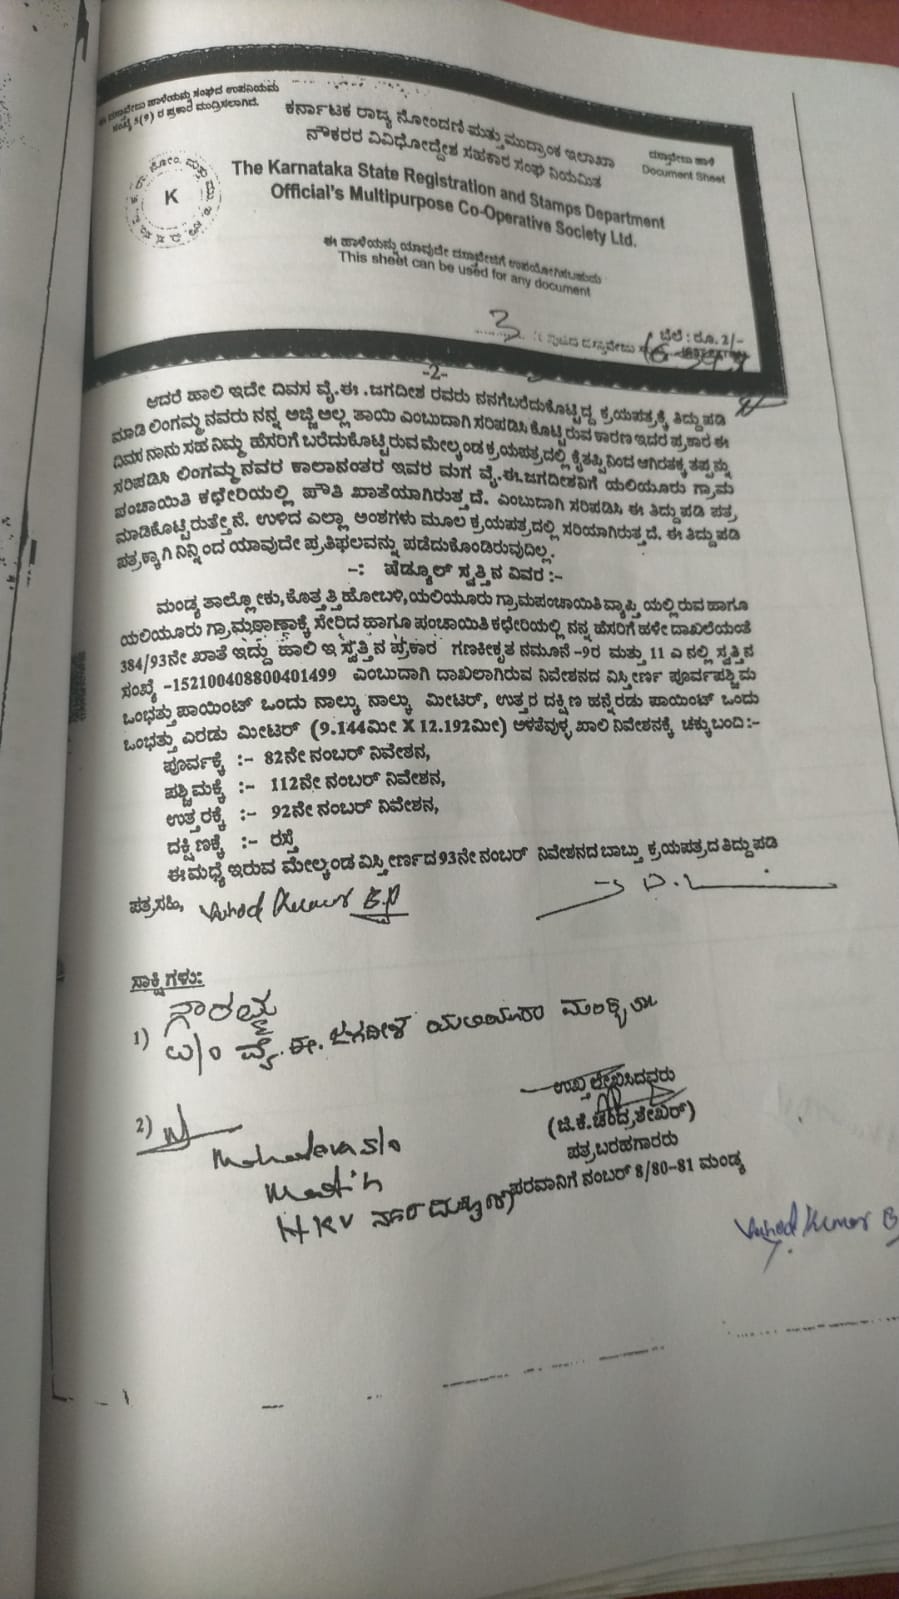 ಈ ದಸ್ತಾವೇಜು ಹಾಳೆಯನ್ನು ಸಂಘದ ಉಪನಿಯಮ
ಸಂಖ್ಯೆ 5(9) ರ ಪ್ರಕಾರ ಮುದ್ರಿಸಲಾಗಿದೆ.
ಕರ್ನಾಟಕ ರಾಜ್ಯ ನೋಂದಣಿ ಮತ್ತು ಮುದ್ರಾಂಕ ಇಲಾಖಾ
ನೌಕರರ ವಿವಿಧೋದ್ದೇಶ ಸಹಕಾರ ಸಂಘ ನಿಯಮಿತ
ದಸ್ತಾವೇಜು ಹಾಳೆ
Document Sheet
K
The Karnataka State Registration and Stamps Department
Official's Multipurpose Co-Operative Society Ltd.
ಈ ಹಾಳೆಯನ್ನು ಯಾವುದೇ ದಸ್ತಾವೇಜಿಗೆ ಉಪಯೋಗಿಸಬಹುದು
This sheet can be used for any document
ಬೆಲೆ : ರೂ. 2/-
3 ನೇ ಪುಟದ ದಸ್ತಾವೇಜು
-2-
ಆದರೆ ಹಾಲಿ ಇದೇ ದಿವಸ ವೈ.ಈ .ಜಗದೀಶ ರವರು ನನಗೆಬರೆದುಕೊಟ್ಟಿದ್ದ ಕ್ರಯಪತ್ರಕ್ಕೆ ತಿದ್ದುಪಡಿ
ಮಾಡಿ ಲಿಂಗಮ್ಮನವರು ನನ್ನ ಅಜ್ಜಿ ಅಲ್ಲ ತಾಯಿ ಎಂಬುದಾಗಿ ಸರಿಪಡಿಸಿ ಕೊಟ್ಟಿರುವ ಕಾರಣ ಇದರ ಪ್ರಕಾರ ಈ
ದಿವಸ ನಾನು ಸಹ ನಿಮ್ಮ ಹೆಸರಿಗೆ ಬರೆದುಕೊಟ್ಟಿರುವ ಮೇಲ್ಕಂಡ ಕ್ರಯಪತ್ರದಲ್ಲಿ ಕೈತಪ್ಪಿನಿಂದ ಆಗಿರತಕ್ಕ ತಪ್ಪನ್ನು
ಸರಿಪಡಿಸಿ ಲಿಂಗಮ್ಮನವರ ಕಾಲಾನಂತರ ಇವರ ಮಗ ವೈ.ಈ.ಜಗದೀಶನಿಗೆ ಯಲಿಯೂರು ಗ್ರಾಮ
ಪಂಚಾಯಿತಿ ಕಛೇರಿಯಲ್ಲಿ ಪೌತಿ ಖಾತೆಯಾಗಿರುತ್ತದೆ. ಎಂಬುದಾಗಿ ಸರಿಪಡಿಸಿ ಈ ತಿದ್ದುಪಡಿ ಪತ್ರ
ಮಾಡಿಕೊಟ್ಟಿರುತ್ತೇನೆ. ಉಳಿದ ಎಲ್ಲಾ ಅಂಶಗಳು ಮೂಲ ಕ್ರಯಪತ್ರದಲ್ಲಿ ಸರಿಯಾಗಿರುತ್ತದೆ. ಈ ತಿದ್ದುಪಡಿ
ಪತ್ರಕ್ಕಾಗಿ ನಿನ್ನಿಂದ ಯಾವುದೇ ಪ್ರತಿಫಲವನ್ನು ಪಡೆದುಕೊಂಡಿರುವುದಿಲ್ಲ.
-: ಷೆಡ್ಯೂಲ್ ಸ್ವತ್ತಿನ ವಿವರ :-
ಮಂಡ್ಯ ತಾಲ್ಲೋಕು, ಕೊತ್ತತ್ತಿ ಹೋಬಳಿ, ಯಲಿಯೂರು ಗ್ರಾಮಪಂಚಾಯಿತಿ ವ್ಯಾಪ್ತಿಯಲ್ಲಿರುವ ಹಾಗೂ
ಯಲಿಯೂರು ಗ್ರಾಮಠಾಣಾಕ್ಕೆ ಸೇರಿದ ಹಾಗೂ ಪಂಚಾಯಿತಿ ಕಛೇರಿಯಲ್ಲಿ ನನ್ನ ಹೆಸರಿಗೆ ಹಳೇ ದಾಖಲೆಯಂತೆ
384/93ನೇ ಖಾತೆ ಇದ್ದು ಹಾಲಿ ಇ ಸ್ವತ್ತಿನ ಪ್ರಕಾರ ಗಣಕೀಕೃತ ನಮೂನೆ -9ರ ಮತ್ತು 11 ಎ ನಲ್ಲಿ ಸ್ವತ್ತಿನ
ಸಂಖ್ಯೆ -152100408800401499 ಎಂಬುದಾಗಿ ದಾಖಲಾಗಿರುವ ನಿವೇಶನದ ವಿಸ್ತೀರ್ಣ ಪೂರ್ವಪಶ್ಚಿಮ
ಒಂಭತ್ತು ಪಾಯಿಂಟ್ ಒಂದು ನಾಲ್ಕು ನಾಲ್ಕು ಮೀಟರ್, ಉತ್ತರ ದಕ್ಷಿಣ ಹನ್ನೆರಡು ಪಾಯಿಂಟ್ ಒಂದು
ಒಂಭತ್ತು ಎರಡು ಮೀಟರ್ (9.144ಮೀ X 12.192ಮೀ) ಅಳತೆವುಳ್ಳ ಖಾಲಿ ನಿವೇಶನಕ್ಕೆ ಚಕ್ಕುಬಂದಿ:-
ಪೂರ್ವಕ್ಕೆ :- 82ನೇ ನಂಬರ್ ನಿವೇಶನ,
ಪಶ್ಚಿಮಕ್ಕೆ :- 112ನೇ ನಂಬರ್ ನಿವೇಶನ,
ಉತ್ತರಕ್ಕೆ :- 92ನೇ ನಂಬರ್ ನಿವೇಶನ,
ದಕ್ಷಿಣಕ್ಕೆ :- ರಸ್ತೆ
ಈ ಮಧ್ಯೆ ಇರುವ ಮೇಲ್ಕಂಡ ವಿಸ್ತೀರ್ಣದ 93ನೇ ನಂಬರ್ ನಿವೇಶನದ ಬಾಬ್ತು ಕ್ರಯಪತ್ರದ ತಿದ್ದುಪಡಿ
ಪತ್ರಸಹಿ,
ಸಾಕ್ಷಿಗಳು:
1)
ವೈ.ಈ. ಜಗದೀಶ ಯಲಿಯೂರು ಮಂಡ್ಯ ತಾ
ಉಕ್ತಲೇಖಿಸಿದವರು
(ಜಿ.ಕೆ.ಚಂದ್ರಶೇಖರ್)
ಪತ್ರಬರಹಗಾರರು
ಪರವಾನಿಗೆ ನಂಬರ್ 8/80-81 ಮಂಡ್ಯ
2)
Mahadeva s/o
HKV ನಗರ